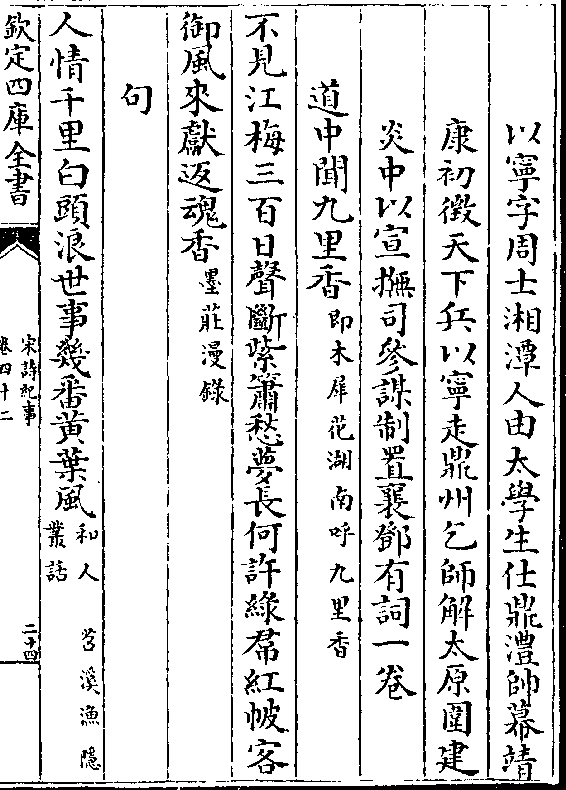 以寧字周士湘潭人由太學生仕鼎澧帥幕靖
康初徵天下兵以寧走鼎州乞師解太原圍建
炎中以宣撫司參謀制置襄鄧有詞一卷
道中聞九里香即木犀花湖南呼九里香
不見江梅三百日聲斷紫簫愁夢長何許綠帬紅帔客
御風來獻返魂香墨莊漫錄
句
人情千里白頭浪世事幾番黃葉風和人 苕溪漁隱叢話
欽定四庫全書
宋詩紀事
卷四十二
二十四